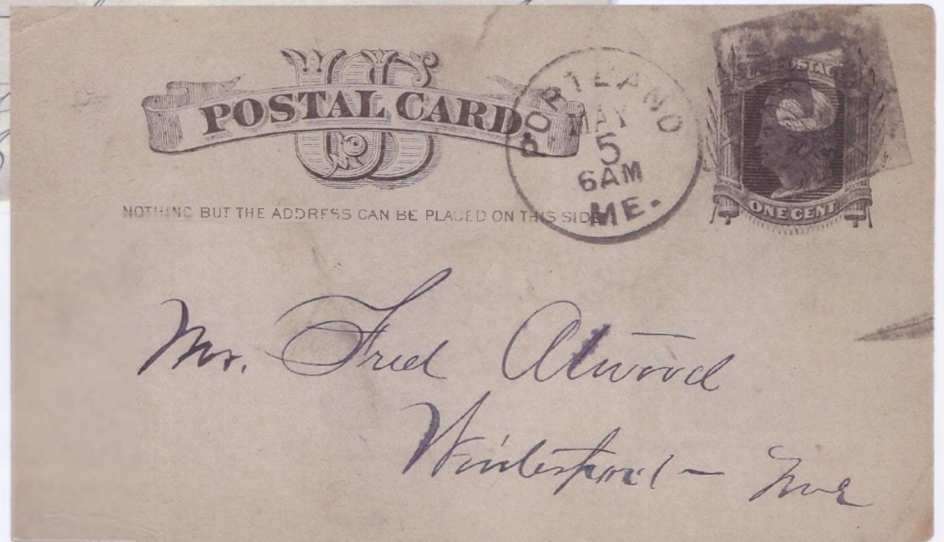 US
POSTAL CARD
NOTHING BUT THE ADDRESS CAN BE PLACED ON THIS SIDE
PORTLAND
MAY
5
6AM
ME.
U.S. POSTAGE
ONE CENT
Mr. Fred Atwood
Winterport - Me